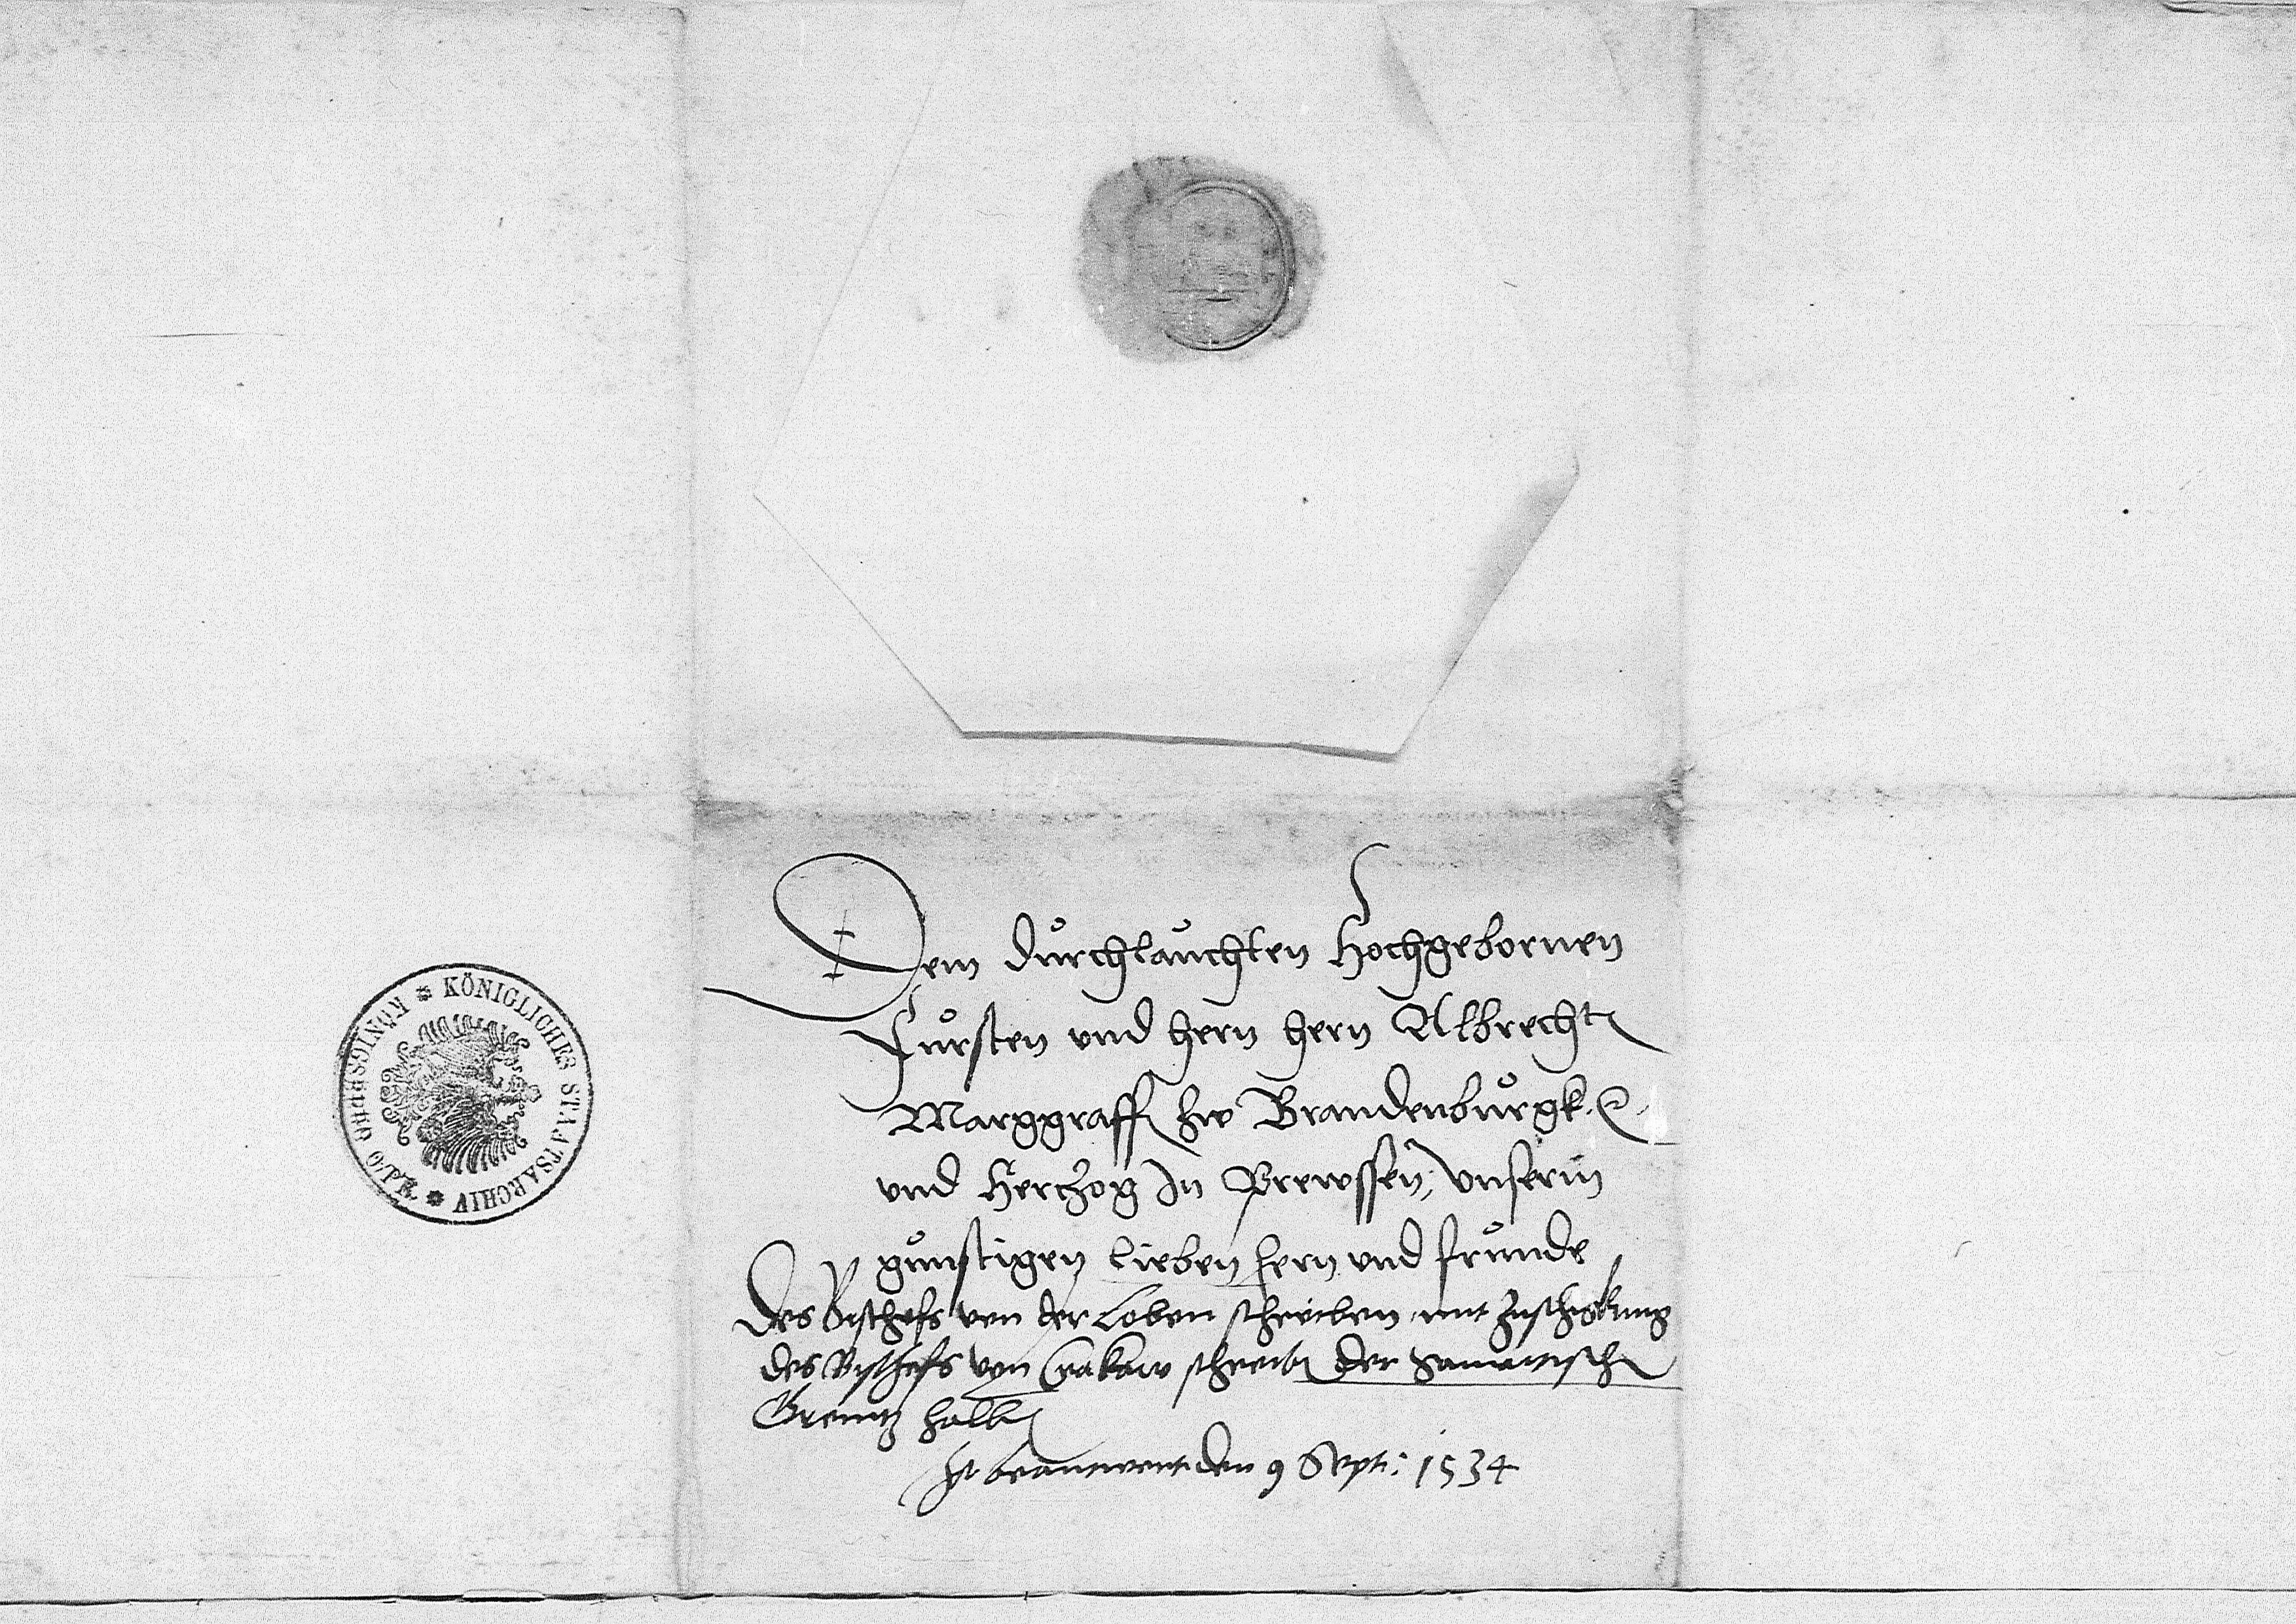 KÖNIGLICHES STAATSARCHIV * KÖNIGSBERG O./PR. *
Dem durchlauchten Hochgebornen
Fursten vnd hern hern Albrecht
Marggraff zw Brandenburgk
vnd Herczog In Prewssen, vnserm
gunstigen lieben hern vnd frunde
Des Bischofs von der Loben schreiben mit Zuschickung
des Bischofs von Crakaw schreib der Samaitisch
Grenitz halb
Ist beantwort den 9 Sept: 1534